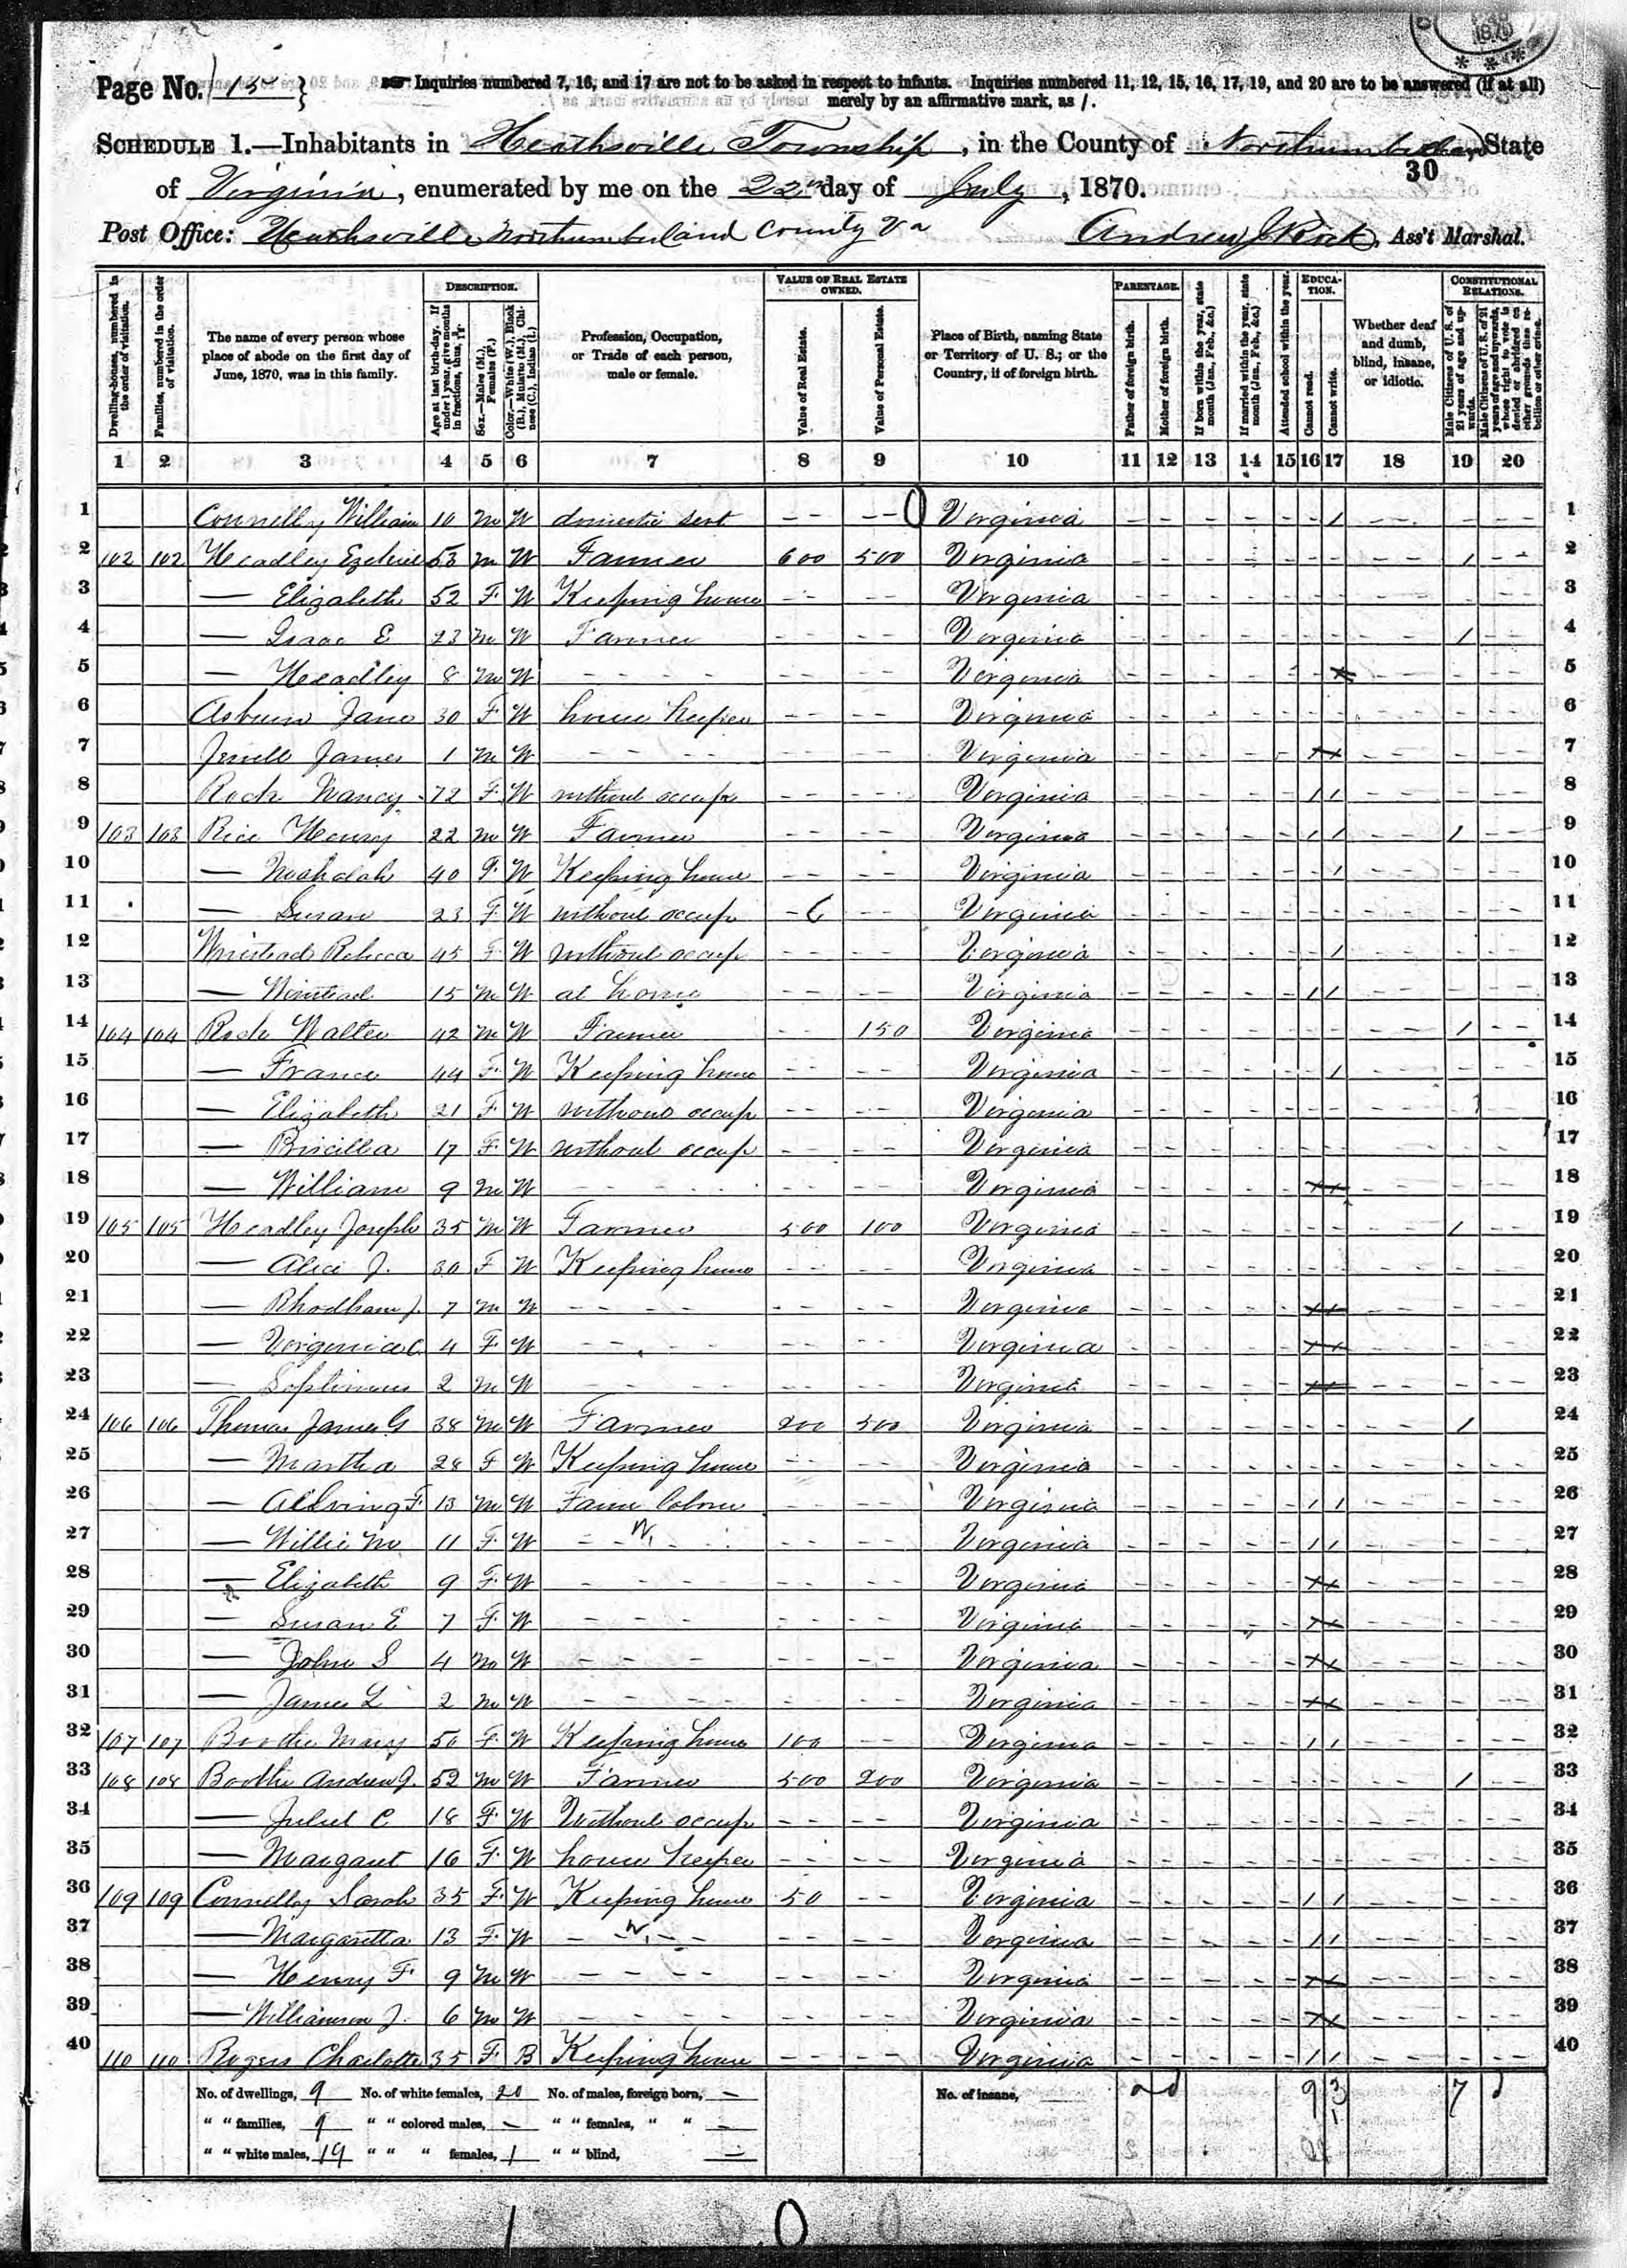 Page No. 15 } Inquiries numbered 7, 16, and 17 are not to be asked in respect to infants. Inquiries numbered 11, 12, 15, 16, 17, 19, and 20 are to be answered (if at all)
merely by an affirmative mark, as /.
SCHEDULE 1.—Inhabitants in Heathsville Township, in the County of Northumberland State
30
of Virginia, enumerated by me on the 22nd day of July, 1870.
Post Office: Heathsville Northumberland County Va Andrew J Rock, Ass't Marshal.
Dwelling-houses, numbered in the order of visitation.
Families, numbered in the order of visitation.
The name of every person whose place of abode on the first day of June, 1870, was in this family.
DESCRIPTION.
Age at last birth-day. If under 1 year, give months in fractions, thus, 3/12
Sex.—Males (M.), Females (F.)
Color.—White (W.), Black (B.), Mulatto (M.), Chinese (C.), Indian (I.)
Profession, Occupation, or Trade of each person, male or female.
VALUE OF REAL ESTATE OWNED.
Value of Real Estate.
Value of Personal Estate.
Place of Birth, naming State or Territory of U. S.; or the Country, if of foreign birth.
PARENTAGE.
Father of foreign birth.
Mother of foreign birth.
If born within the year, state month (Jan., Feb., &c.)
If married within the year, state month (Jan., Feb., &c.)
Attended school within the year.
EDUCATION.
Cannot read.
Cannot write.
Whether deaf and dumb, blind, insane, or idiotic.
CONSTITUTIONAL RELATIONS.
Male Citizens of U. S. of 21 years of age and upwards.
Male Citizens of U. S. of 21 years of age and upwards, whose right to vote is denied or abridged on other grounds than rebellion or other crime.
1 2 3 4 5 6 7 8 9 10 11 12 13 14 15 16 17 18 19 20
1 Connelly William 10 M W domestic sert Virginia / 1
2 102 102 Headley Ezekiel 53 M W Farmer 600 500 Virginia / 2
3 — Elizabeth 52 F W Keeping house Virginia 3
4 — Isaac E 23 M W Farmer Virginia / 4
5 — Headley 8 M W Virginia 5
6 Jane 30 F W house keeper Virginia 6
7 James 1 M W Virginia 7
8 Rock Nancy 72 F W without occup Virginia / / 8
9 103 103 Rice Henry 22 M W Farmer Virginia / / / 9
10 — 40 F W Keeping house Virginia / 10
11 — Susan 23 F W without occup Virginia 11
12 Winstead Rebecca 45 F W without occup Virginia / 12
13 — Winstead 15 M W at home Virginia / / 13
14 104 104 Walter 42 M W Farmer 150 Virginia / 14
15 — France 44 F W Keeping house Virginia / 15
16 — Elizabeth 21 F W without occup Virginia 16
17 — Pricilla 17 F W without occup Virginia 17
18 — William 9 M W Virginia 18
19 105 105 Headley Joseph 35 M W Farmer 500 100 Virginia / 19
20 — Alice J. 30 F W Keeping house Virginia 20
21 — Rhodham J. 7 M W Virginia 21
22 — Virginia C. 4 F W Virginia 22
23 — Septimus 2 M W Virginia 23
24 106 106 Thomas James G 38 M W Farmer 200 500 Virginia / 24
25 — Martha 28 F W Keeping house Virginia 25
26 — F. 13 M W Farm labour Virginia / / 26
27 — Willie M 11 F W Virginia / / 27
28 — Elizabeth 9 F W Virginia 28
29 — Susan E 7 F W Virginia 29
30 — John S 4 M W Virginia 30
31 — James L 2 M W Virginia 31
32 107 107 Boothe Mary 50 F W Keeping house 100 Virginia / / 32
33 108 108 Boothe Andrew J. 52 M W Farmer 500 200 Virginia / 33
34 — C 18 F W Without occup Virginia 34
35 — Margaret 16 F W house keeper Virginia 35
36 109 109 Connelly Sarah 35 F W Keeping house 50 Virginia / / 36
37 — Margaretta 13 F W Virginia / / 37
38 — Henry F 9 M W Virginia 38
39 — Williamson J. 6 M W Virginia 39
40 110 110 Rogers Charlotte 35 F B Keeping house Virginia / / 40
No. of dwellings, 9 No. of white females, 20 No. of males, foreign born, — No. of insane, 9 3 7
" " families, 9 " " colored males, — " " females, " " — 1
" " white males, 19 " " " females, 1 " " blind, —